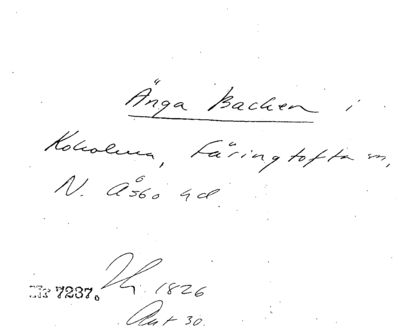 Änga Backen i
Kokolma, Färingtofta sn,
N. Åsbo hd.
Nr 7237. 1826
Akt 30.